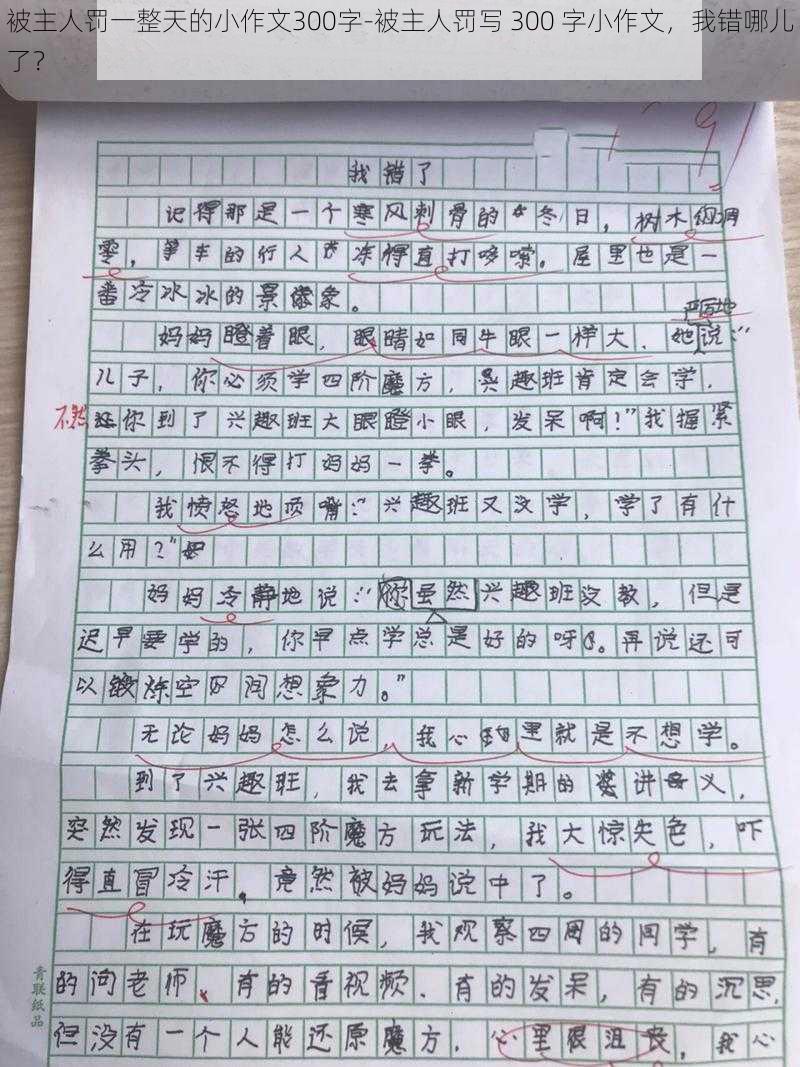 被主人罚一整天的小作文300字-被主人罚写 300 字小作文，我错哪儿
了？
91
我错了
记得那是一个寒风刺骨的冬日，树木凋
零，车的行人冻得直打哆嗦。屋里也是一
番冷冰冰的景象。
严厉地
妈妈瞪着眼，眼睛如同牛眼一样大．她说：“
儿子，你必须学四阶魔方，兴趣班肯定会学，
不然
你到了兴趣班大眼瞪小眼，发呆啊！”我握紧
拳头，恨不得打妈妈一拳。
我愤怒地顶嘴：“兴趣班又没学，学了有什
么用？”
妈妈冷静地说：“你虽然兴趣班没教，但是
迟早要学的，你早点学总是好的呀。再说还可
以锻炼空间想象力。”
无论妈妈怎么说，我心里就是不想学。
到了兴趣班，我去拿新学期的讲义，
突然发现一张四阶魔方玩法，我大惊失色，吓
得直冒冷汗，竟然被妈妈说中了。
在玩魔方的时候，我观察四周的同学，有
的问老师、有的看视频．有的发呆，有的沉思，
但没有一个人能还原魔方．心里很沮丧，我心
青联纸品